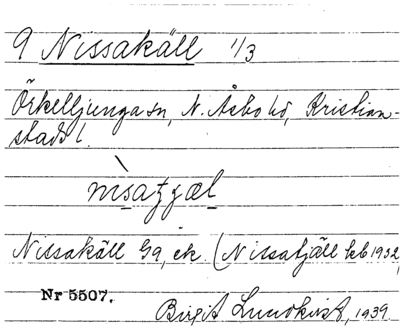 9 Nissakäll 1/3
Örkelljunga sn, N. Åsbo hd, Kristian-
stads l.
Nissakäll Gg, ek. (Nissatjäll kb 1932,
Nr 5507.
Birgit Lundkvist, 1939